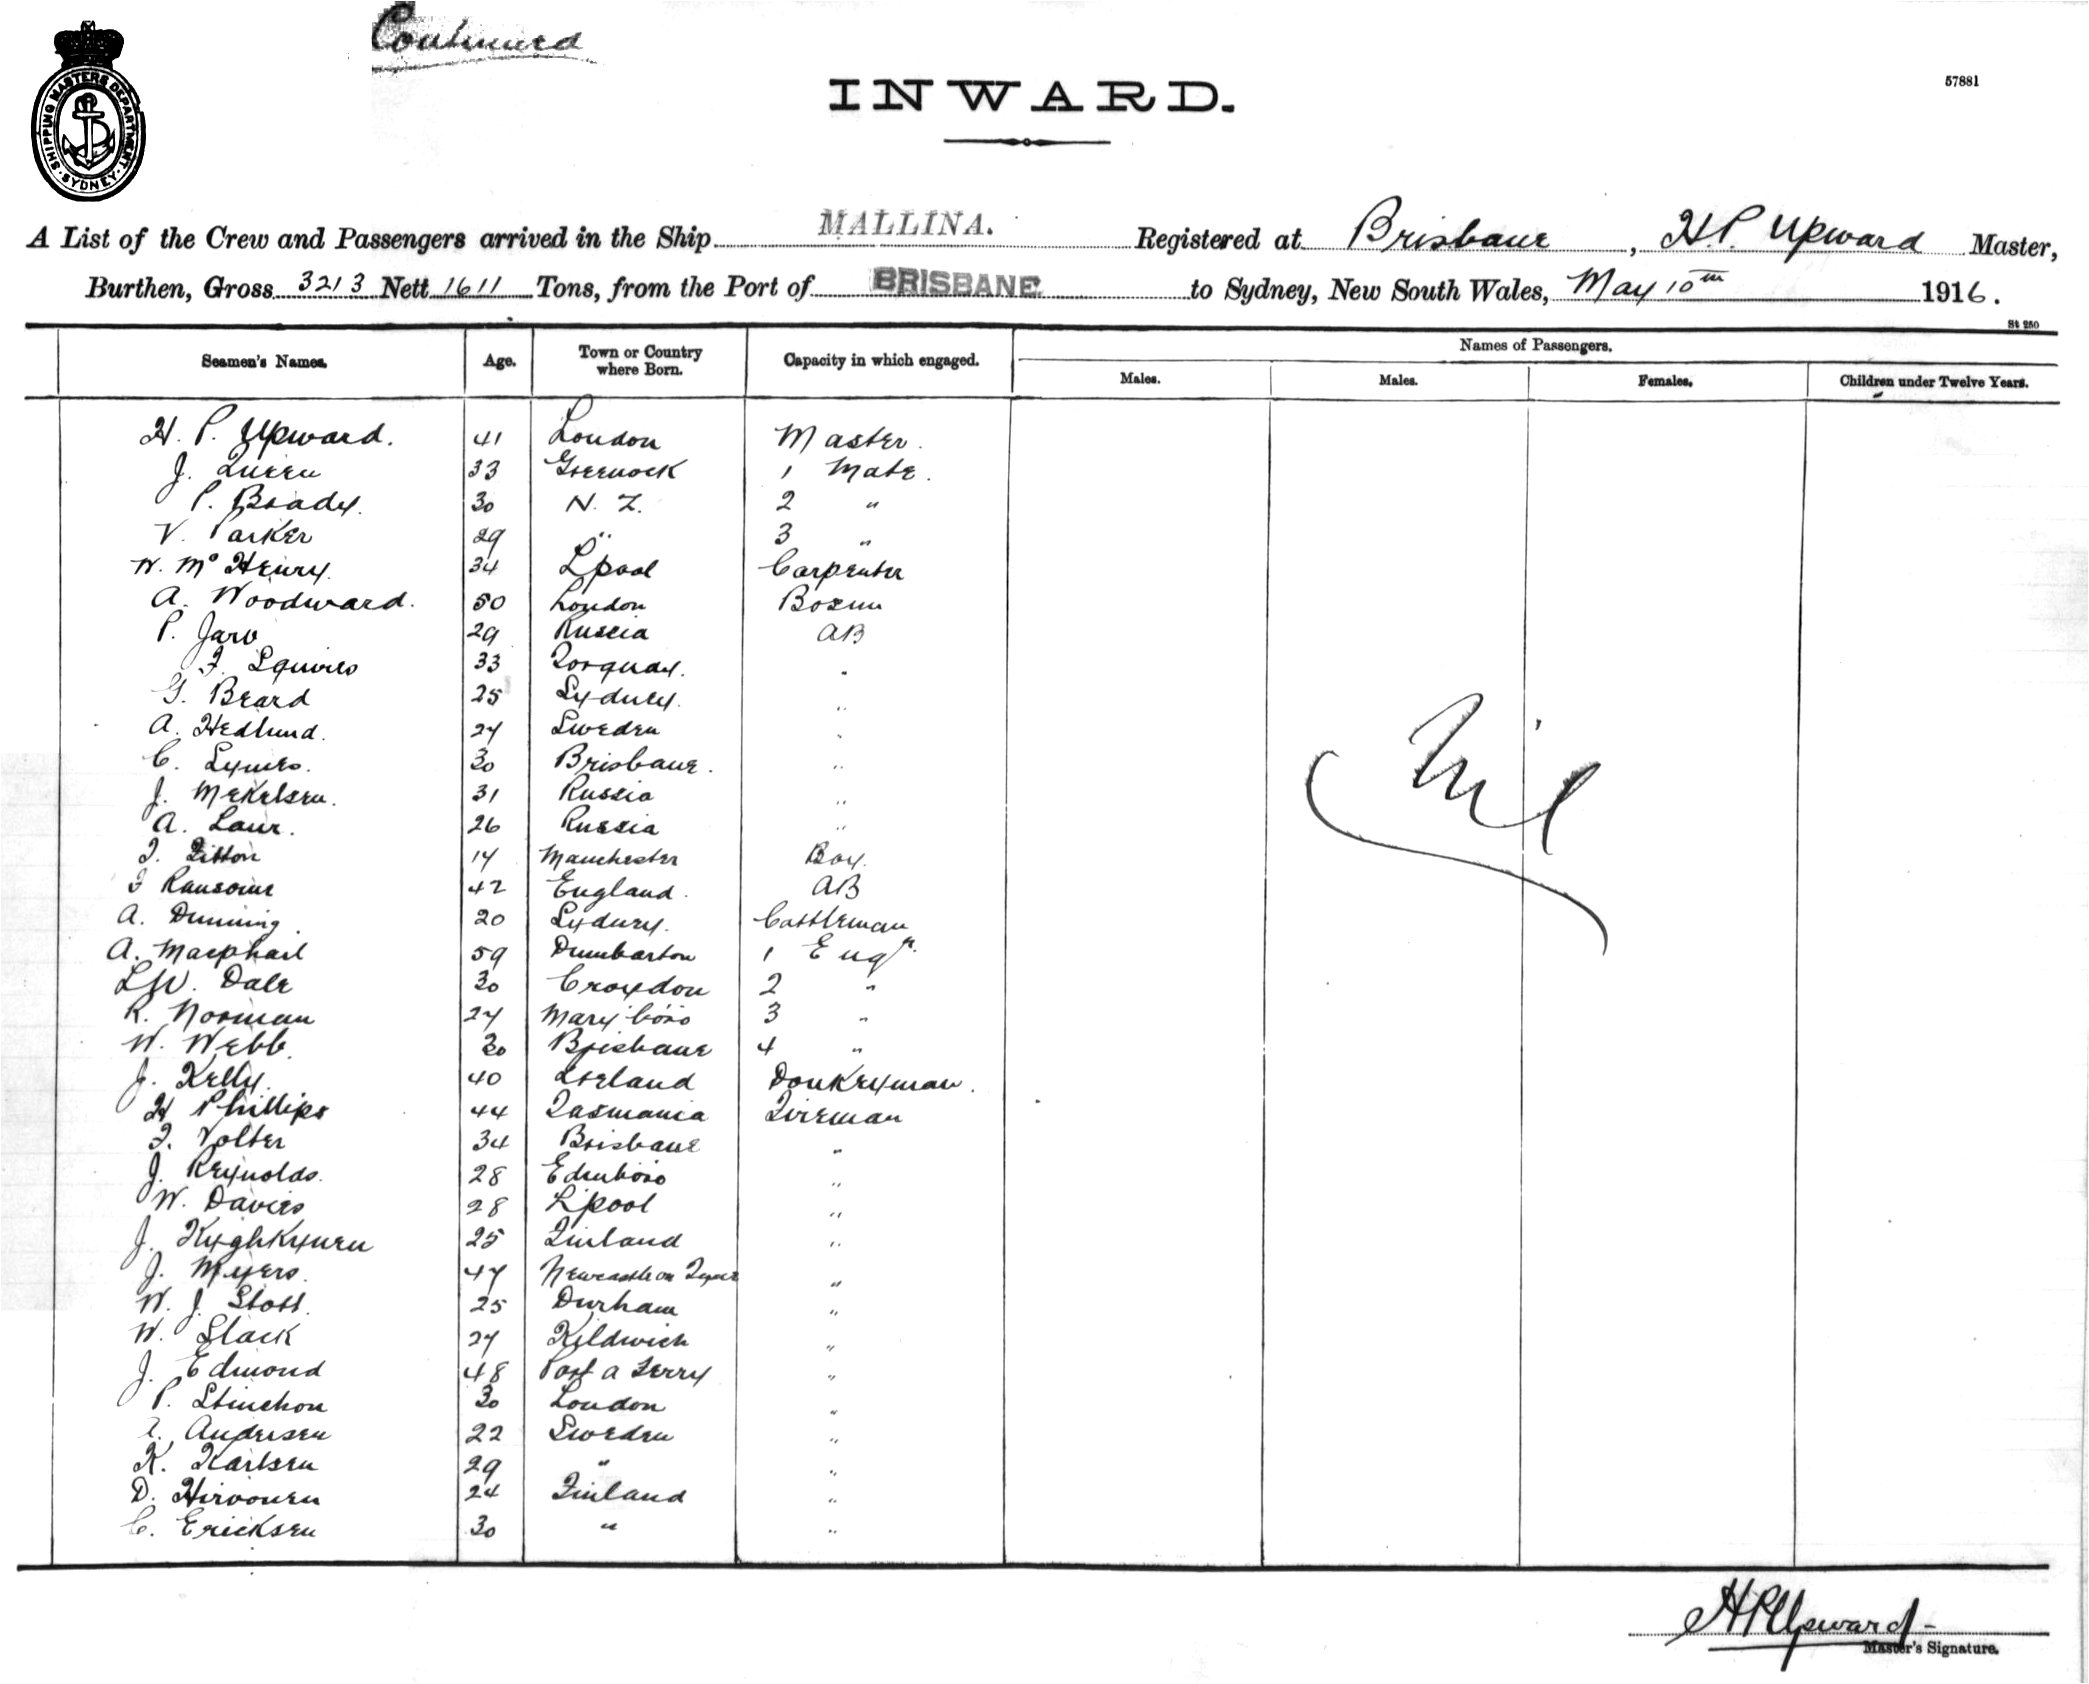 Continued
SHIPPING MASTERS DEPARTMENT.
SYDNEY
INWARD.
57881
A List of the Crew and Passengers arrived in the Ship MALLINA. Registered at Brisbane, H.P. Upward Master,
Burthen, Gross 3213 Nett 1611 Tons, from the Port of BRISBANE to Sydney, New South Wales, May 10th 1916.
St 250
Seamen's Names. Age. Town or Country where Born. Capacity in which engaged. Names of Passengers.
Males. Males. Females. Children under Twelve Years.
H. P. Upward. 41 London Master.
J. Queen 33 Greenock 1 Mate.
P. Brady. 30 N. Z. 2 "
V. Parker 29 " 3 "
W. Mc Henry. 34 L'pool Carpenter
A. Woodward. 50 London Bosun
P. Jarv 29 Russia AB
F. Squires 33 Torquay. "
G. Beard 25 Sydney. "
A. Hedlund. 24 Sweden "
C. Symes. 30 Brisbane. "
J. Mekelsen. 31 Russia "
A. Laur. 26 Russia "
F. Fitton 14 Manchester Boy.
F Ransome 42 England. AB
A. Dunning. 20 Sydney. Cattleman
A. Macphail 59 Dumbarton 1 Engr.
L W. Dale 30 Croydon 2 "
R. Norman 24 Mary'boro 3 "
W. Webb. 30 Brisbane 4 "
J. Kelly. 40 Ireland Donkeyman.
H Phillips 44 Tasmania Fireman
F. Volter 34 Brisbane "
J. Reynolds. 28 Edinboro "
W. Davies 28 L'pool "
J. Kyghkynen 25 Finland "
J. Myers. 47 Newcastle on Tyne "
W. J. Stott. 25 Durham "
W. Slack 27 Kildwich "
J. Edmond 48 Port a Ferry "
P. Stinchon 30 London "
A. Andersen 22 Sweden "
K. Karlsen 29 " "
D. Hirvonen 24 Finland "
C. Ericksen 30 " "
Nil
H P Upward
Master's Signature.